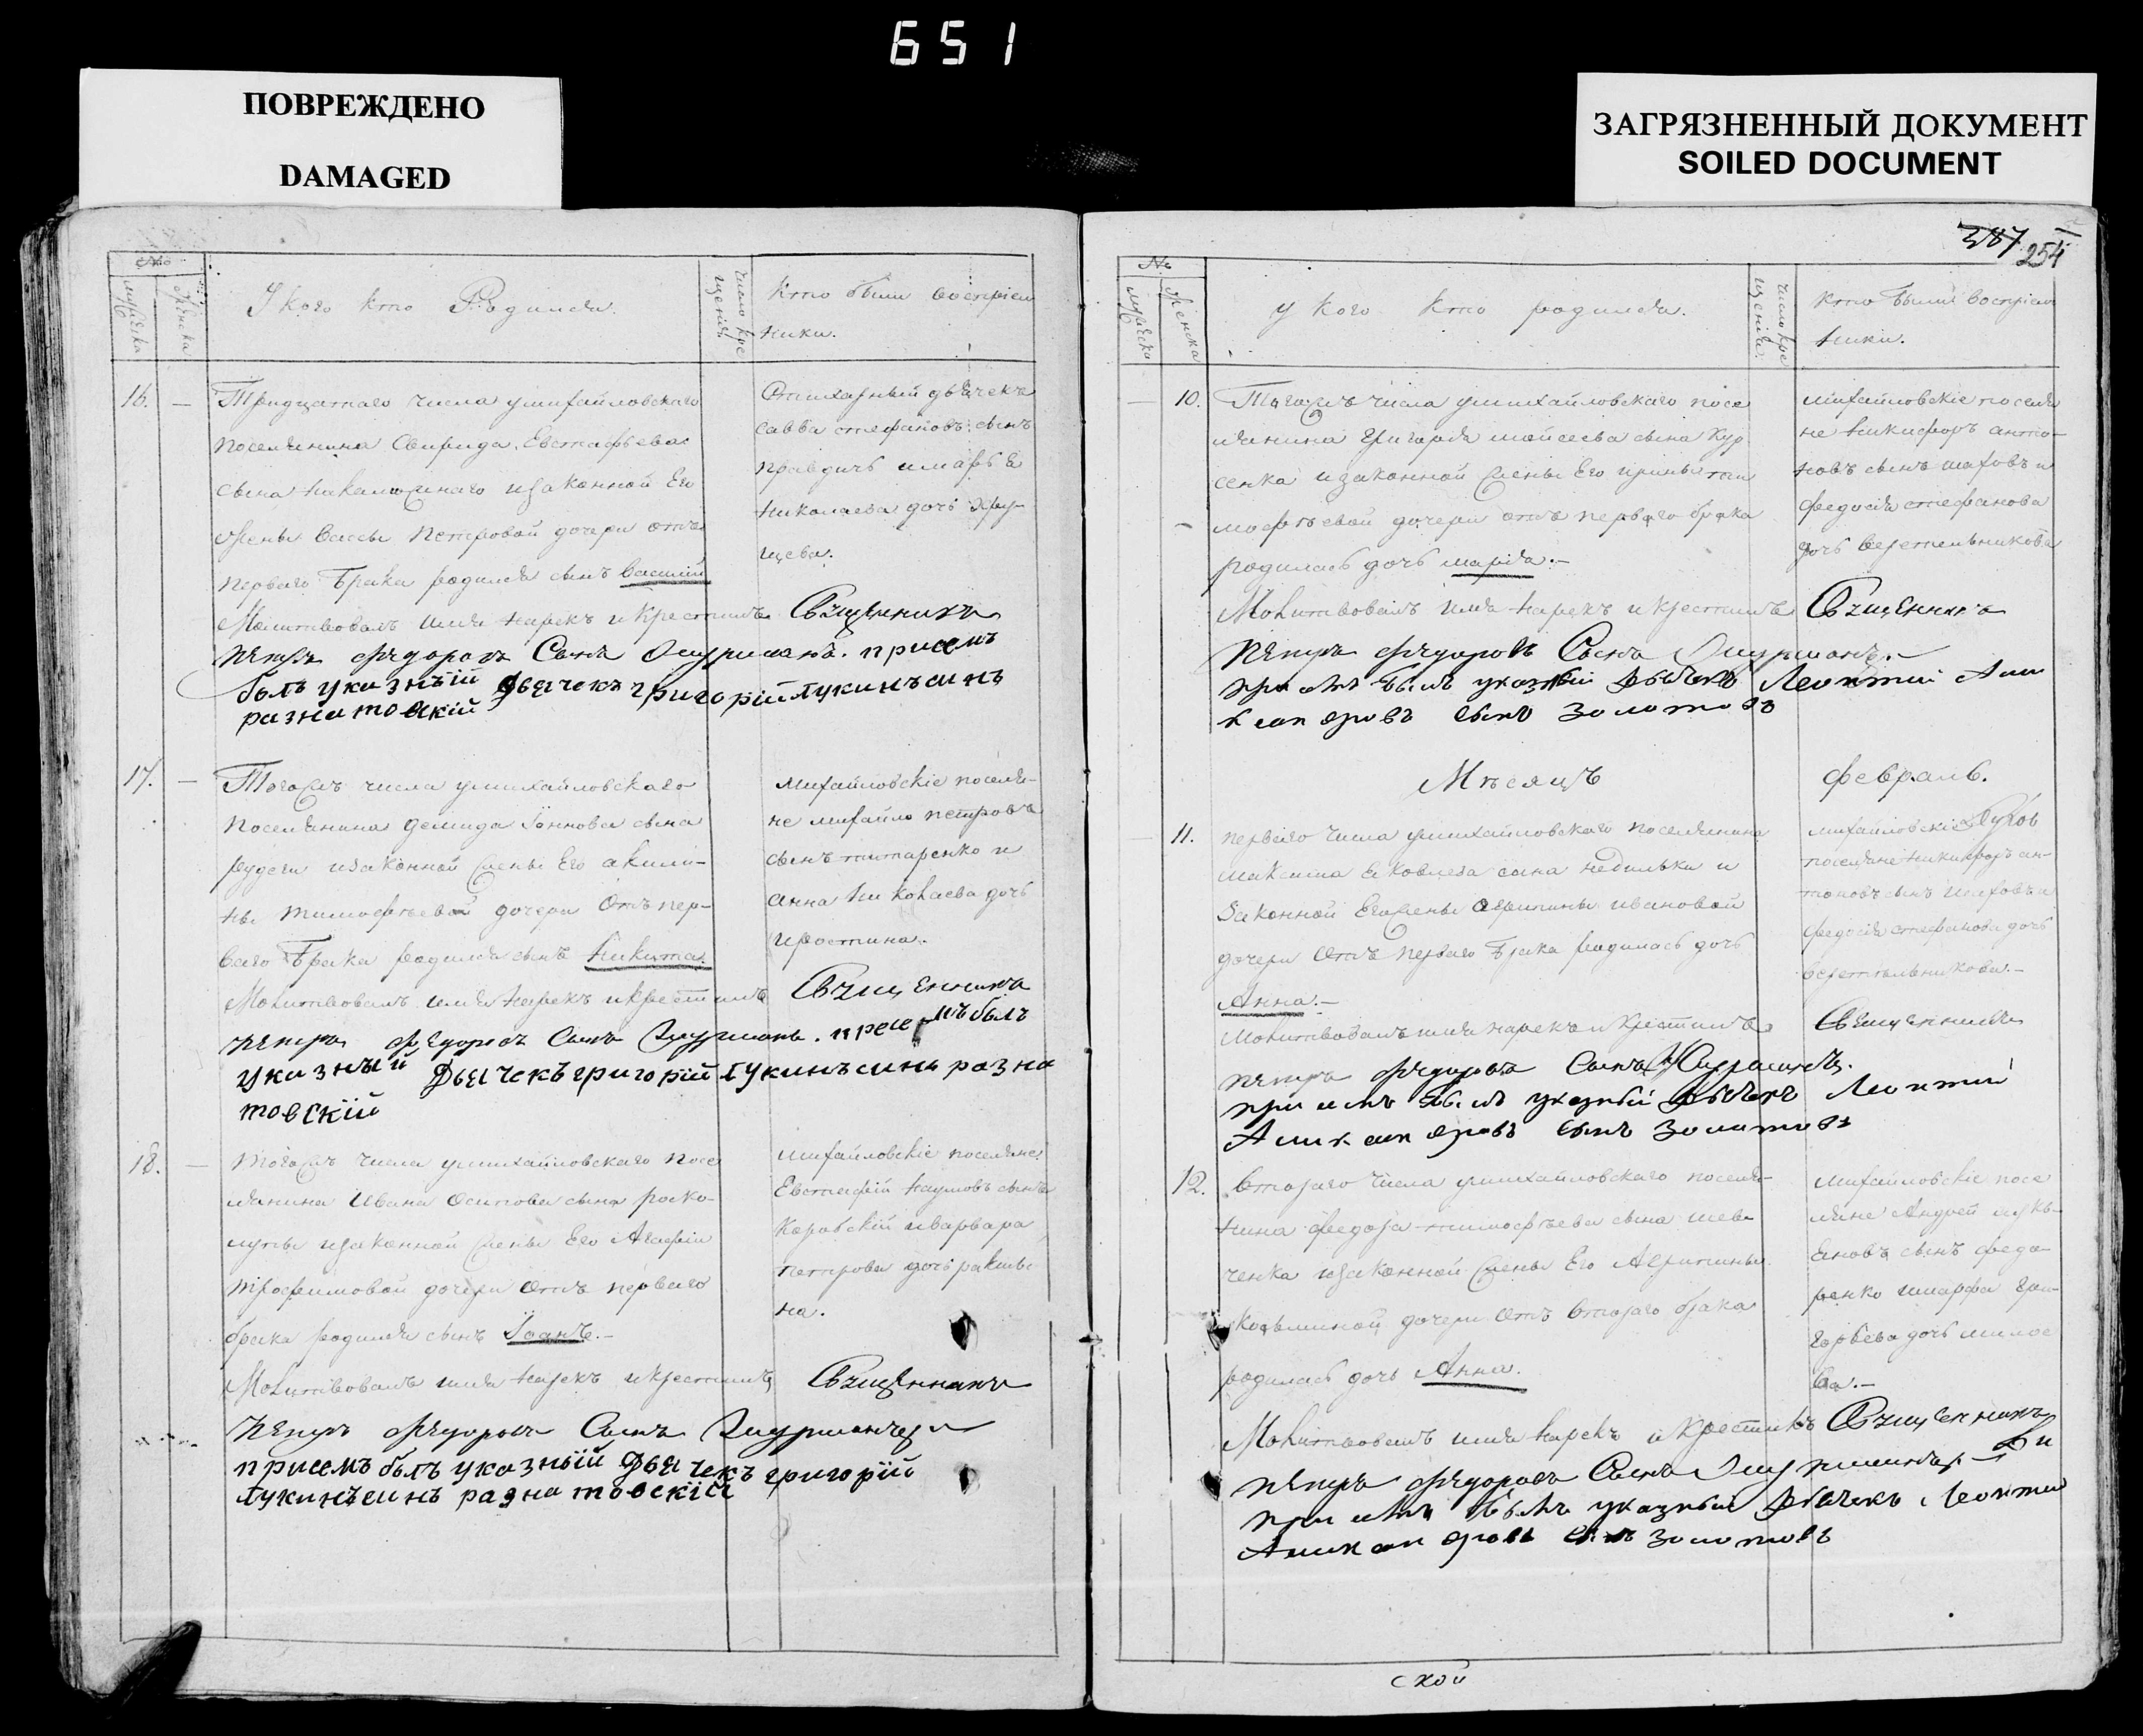 651
ПОВРЕЖДЕНО
DAMAGED
ЗАГРЯЗНЕННЫЙ ДОКУМЕНТ
SOILED DOCUMENT
№
мужеска
женска
У кого кто Родился.
число кре
щенія
Кто были воспріем
ники.
16. —
Тридцатаго числа умихайловскаго
поселянина Свирида Евстафьева
сына изаконной Его
жены Вассы Петровой дочери отъ
перваго брака родился сынъ Василій
Молитвовалъ имя нарекъ икрестилъ Священикъ
Петръ Федоровъ Сынъ присемъ
былъ указный Дьячекъ григорій Лукинъ синъ
разнатовскій
Стихарный дьячекъ
савва стефановъ сынъ
николаева дочь хру-
щева.
17. —
Тогожъ числа умихайловскаго
поселянина демида Іоннова сына
изаконной жены Его акили-
ны тимофѣевой дочери Отъ пер-
ваго брака родился сынъ Никита.
Молитвовалъ имя нарекъ икрестилъ Священикъ
Петръ Федоровъ Сынъ присемъ былъ
указный Дьячекъ григорій Лукинъ синъ разна
товскій
михайловскіе поселя-
не михайло петровъ
сынъ титаренко и
анна николаева дочь
18. —
Тогожъ числа умихайловскаго посе
лянина Ивана Осипова сына роско-
лупы изаконной жены Его Агафіи
трофимовой дочери Отъ перваго
брака родился сынъ Іоанъ.—
Молитвовалъ имя нарекъ икрестилъ Священникъ
Петръ Федоровъ Сынъ
присемъ былъ указный Дьячекъ григорій
Лукинъ синъ разнатовскій
михайловскіе поселяне
Евстафій наумовъ сынъ
иварвара
петрова дочь ракиты
на.
387
254
№
мужеска
женска
у кого кто родился.
число кре
щенія.
кто были воспріем
ники.
— 10.
Тогожъ числа умихайловскаго посе
лянина Григорія мойсеева сына Кур
сенка изаконной жены Его
дочери отъ перваго брака
родилась дочь марія.—
Молитвовалъ имя нарекъ икрестилъ Священникъ
Петръ Федоровъ Сынъ
присемъ былъ указный Дьячекъ Леонтий Али
ксандровъ сынъ Золотовъ
михайловскіе поселя
не никифоръ анто-
новъ сынъ шаховъ и
федосія стефанова
дочь веретельникова
Мѣсяцъ февраль.
11.
перваго числа умихайловскаго поселянина
максима яковлева сина недилька и
законной Егожены агрипины ивановой
дочери отъ перваго брака родилась дочь
Анна.—
Молитвовалъ имя нарекъ икрестилъ Священникъ
Петръ Федоровъ Сынъ
присемъ былъ указный Дьячекъ Леонтий
Аликсандровъ сынъ Золотовъ
михайловскіе
поселяне никифоръ ан-
тоновъ сынъ шаховъ и
федосія стефанова дочь
веретельникова.—
12.
втораго числа умихайловскаго поселя-
нина федора тимофѣева сына шев
ченка изаконной жены Его Агрипины
козьминой дочери отъ втораго брака
родилась дочь Анна.
Молитвовалъ имя нарекъ икрестилъ Священникъ
Петръ Федоровъ Сынъ
присемъ былъ указный Дьячекъ Леонтий
Аликсандровъ сынъ Золотовъ
михайловскіе посе
ляне Андрей лукь-
яновъ сынъ федо-
ренко имарфа гри-
горьева дочь
ва.—
ской